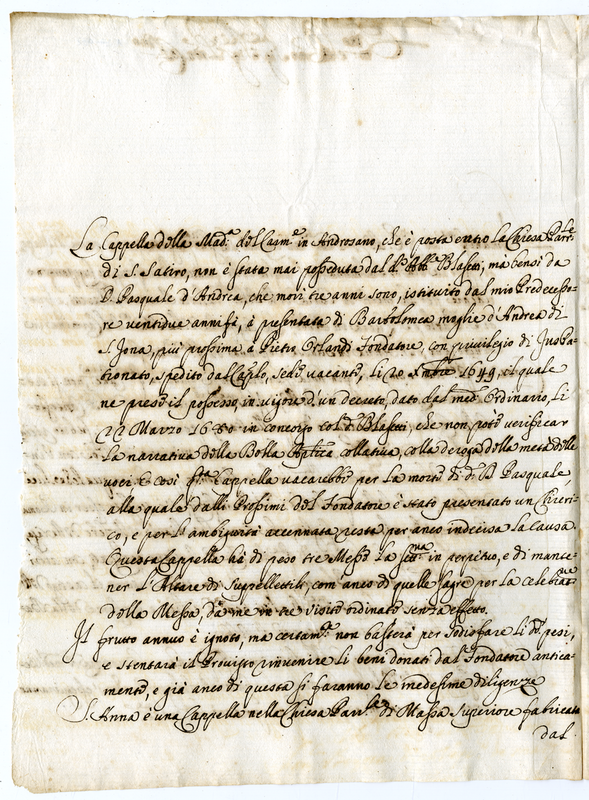 La Cappella della Mad.ª del Carm.e in Androsano, che è posta entro la Chiesa Parr.le
di S. Satiro, non è stata mai posseduta dal d.º Abb.e Blasetti, mà bensi da
D. Pasquale d'Andrea, che morì tre anni sono, istituito dal mio Predecesso-
re ventidue anni fà, à presentata di Bartolomea moglie d'Andrea di
S. Jona, più prossima à Pietro Orlandi Fondatore, con privilegio di Juspa-
tronato, spedito dal Cap.lo, Sede vacante, li 20 Xmbre 1649, il quale
ne prese il possesso in vigore d'un decreto, dato dal med.º Ordinario, li
22 Marzo 1680 in concorso col d.º Blasetti, che non potè verificar
la narrativa della Bolla Ap.lica collativa, colla deroga della metà delle
voci E così s.ta Cappella vacarebbe per la morte di d.º D. Pasquale,
alla quale dalli Prossimi del Fondatore è stato presentato un Chieri-
co, e per l'ambiguità accennata resta per anco indecisa la Causa.
Questa Cappella hà di peso tre Messe la sett.na in perpetuo, e di mante-
ner l'Altare di suppellettili, com'anco di quelle sagre per la celebraz.ne
della Messa, dà me in tre visite ordinato senza effetto.
Il frutto annuo è ignoto, ma certam.te non basterà per sodisfare li d.i pesi,
e stentarà il Provisto rinvenire li beni donati dal Fondatore antica-
mente, e già anco di questa si faranno le medesime diligenze
S. Anna è una Cappella nella Chiesa Parr.le di Massa Superiore fabricata
dal